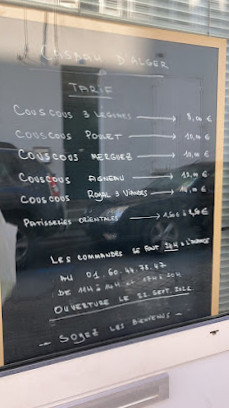 CASBAH D'ALGER
TARIF
COUSCOUS 3 LEGUMES → 8,00 €
COUSCOUS POULET → 10,00 €
COUSCOUS MERGUEZ → 10,00 €
COUSCOUS AGNEAU → 13,00 €
COUSCOUS ROYAL 3 VIANDES → €
PATISSERIES ORIENTALES → 1,50 € à 2,50 €
LES COMMANDES SE FONT 24H à L'AVANCE
AU 01.60.44.78.47
DE 11H À 14H ET 17H À 21H
OUVERTURE LE 22 SEPT.
SOYEZ LES BIENVENUS